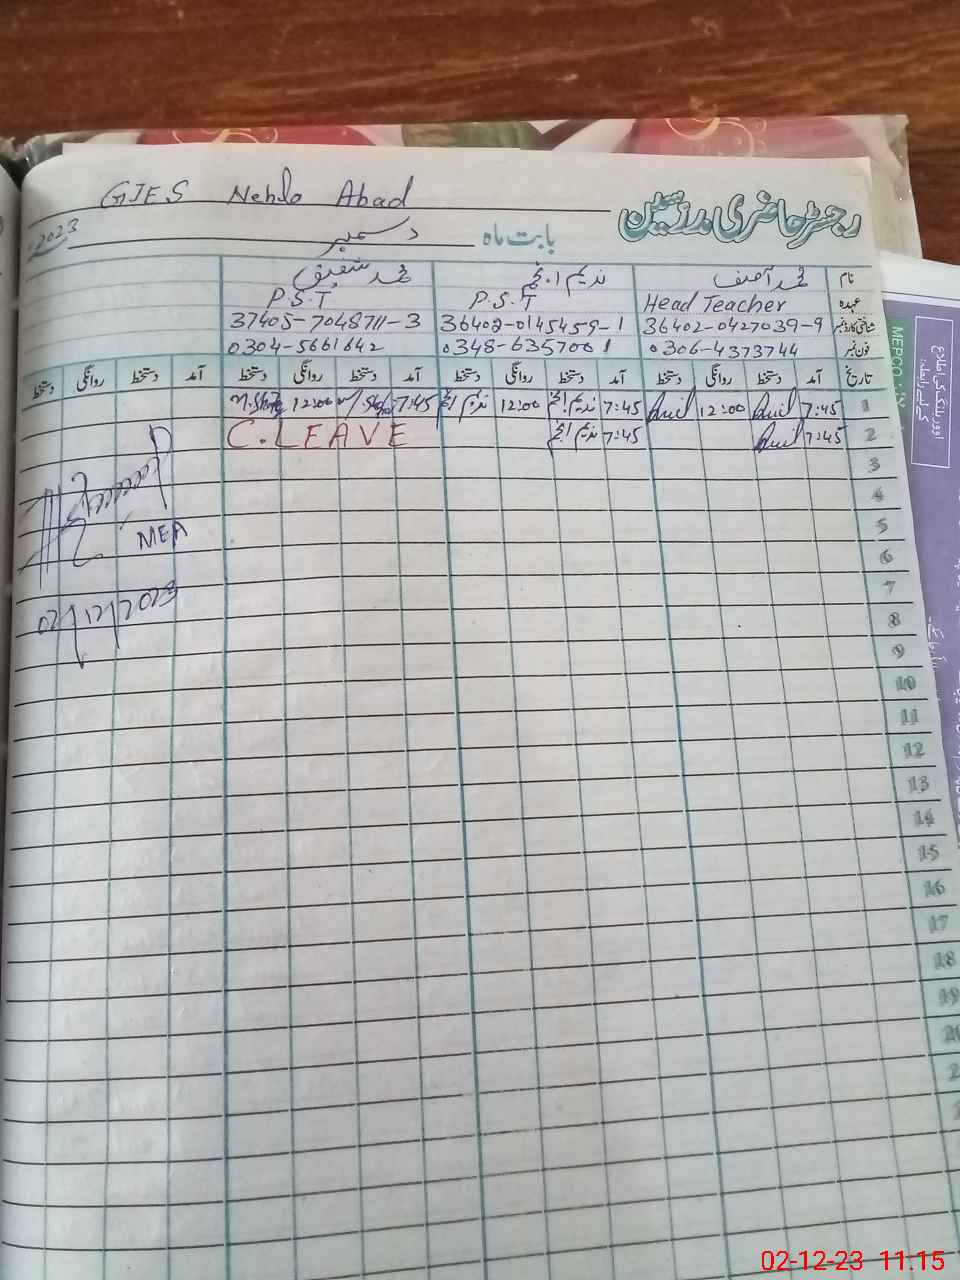 GJES Nehlo Abad
رجسٹر حاضری مدرسین
بابت ماہ دسمبر 2023
نام محمد آصف ندیم انجم محمد شفیق
عہدہ Head Teacher P.S.T P.S.T
شناختی کارڈ نمبر 36402-0427039-9 36402-0145459-1 37405-7048711-3
فون نمبر 0306-4373744 0348-6357001 0304-5661642
تاریخ آمد دستخط روانگی دستخط آمد دستخط روانگی دستخط آمد دستخط روانگی دستخط آمد دستخط روانگی دستخط
1 7:45 12:00 7:45 ندیم انجم 12:00 ندیم انجم 7:45 12:00
2 7:45 7:45 ندیم انجم C.LEAVE
3
4
5
6
7
8
9
10
11
12
13
14
15
16
17
18
19
MEA
02/12/2023
MEPCO
اوور بلنگ کی اطلاع
کے لیے رابطہ:
02-12-23 11.15